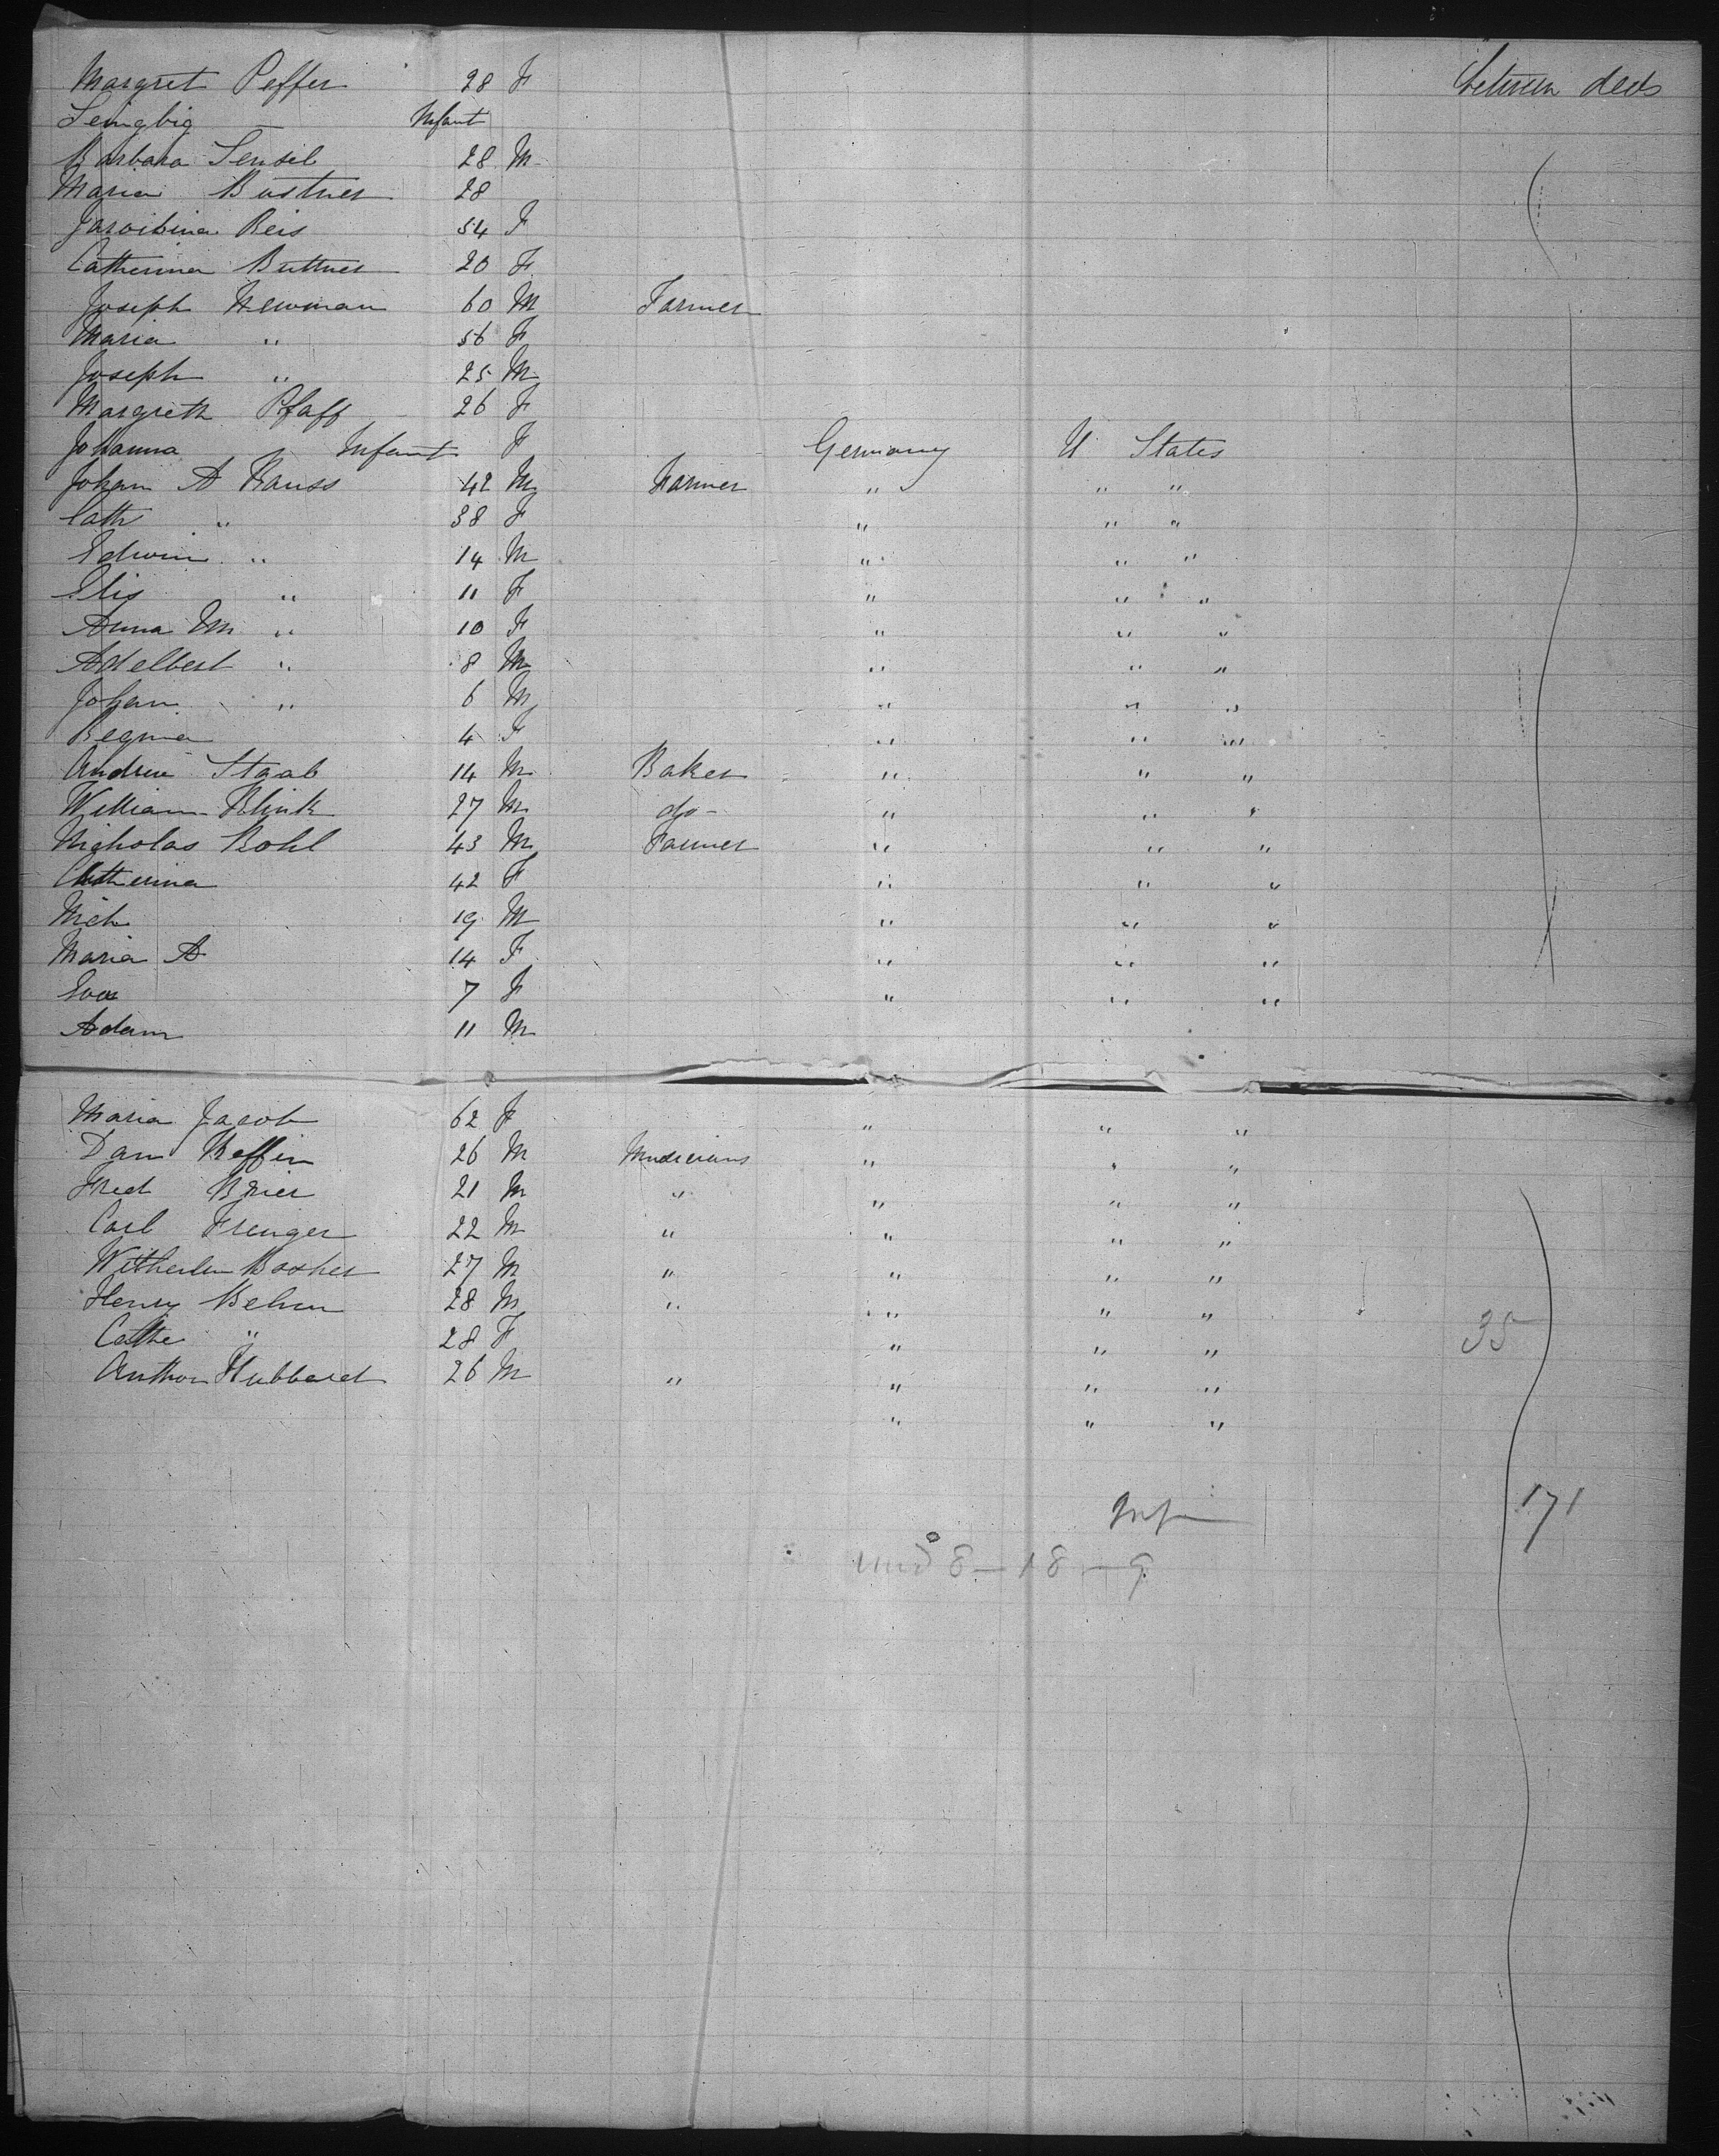 between decks
Margret Peffer 28 F
Infant
Barbara Sensel 28 M
Maria Buttner 28
Reis 54 F
Catherina Buttner 20 F
Joseph Newman 60 M Farmer
Maria " 56 F
Joseph " 25 M
Margreth Pfaff 26 F
Johanna Infant F Germany U States
Johan A Krauss 42 M Farmer " " "
Cath " 38 F " " "
Edwin " 14 M " " "
Elis " 11 F " " "
Anna M " 10 F " " "
Adelbert " 8 M " " "
Johan " 6 M " " "
Regina 4 F " " "
Andrew Staab 14 M Baker " " "
William Klink 27 M do " " "
Nicholas Kohl 43 M Farmer " " "
Catherina 42 F " " "
Nich 19 M " " "
Maria A 14 F " " "
Eva 7 F " " "
Adam 11 M
Maria Jacob 62 F " " "
Dan Keffin 26 M Musicians " " "
Fred Brier 21 M " " " "
Carl Frenger 22 M " " " "
27 M " " " "
Henry Behm 28 M " " " "
Cathe " 28 F " " " 35
Anthon Hubbard 26 M " " " "
" " "
171
8-18-9